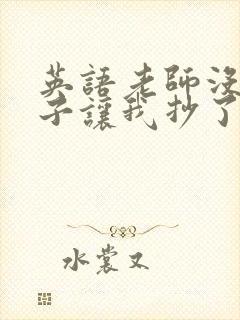 英語老師沒
子讓我抄了
水裳又